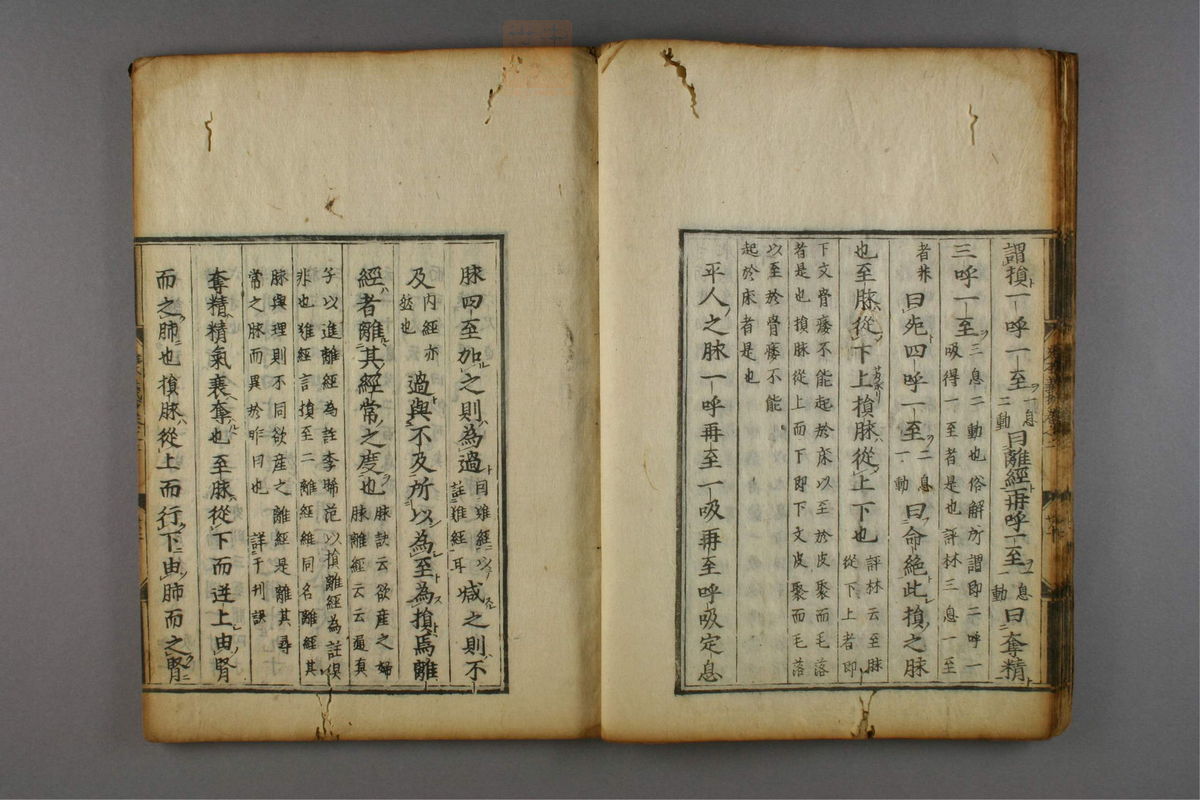 謂損一呼一至一息二動曰離經再呼一至一息一動曰奪精
三呼一至三息二動也俗解所謂即二呼一
吸得一至者是也評林三息一至
者非曰死四呼一至二息一動曰命絕此損之脉
也至脉從下上損脉從上下也評林云至脉從下上者即
下文骨痿不能起於床以至於皮聚而毛落
者是也損脉從上而下即下文皮聚而毛落
以至於骨痿不能
起於床者是也
平人之脉一呼再至一吸再至呼吸定息
脉四至加之則為過同難經以減之則不註難經耳
及內經亦然也過與不及所以為至為損焉離
經者離其經常之度也脉訣云欲産之婦脉離經云云過真
子以進離經為註李晞范以損離經為註俱
非也難經言損至二離經維同名離經其
脉與理則不同欲産之離經是離其尋
常之脉而異於昨日也 詳于刊誤
奪精精氣衰奪也至脉從下而逆上由腎
而之肺也損脉從上而行下由肺而之腎